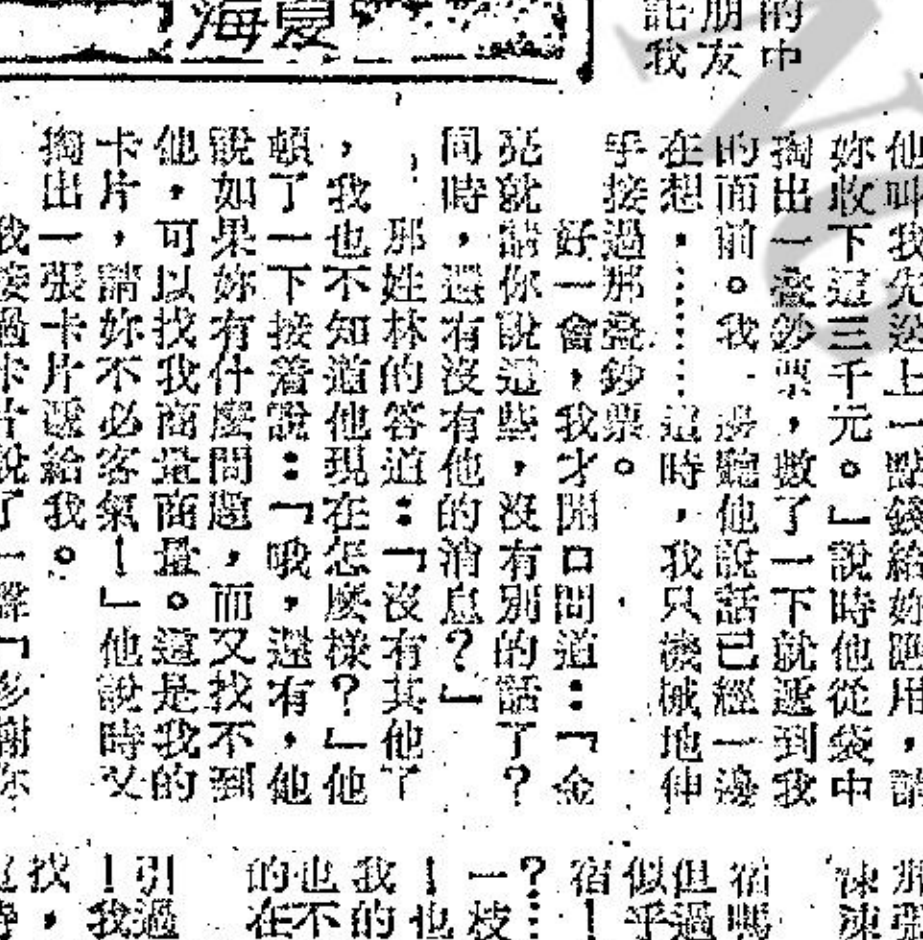 夏海
的中
朋友
託我
他叫我先送上一點錢給妳應用,請
妳收下這三千元。」說時他從袋中
掏出一疊鈔票,數了一下就遞到我
的面前。我一邊聽他說話已經一邊
在想,……這時,我只機械地伸
乎接過那疊鈔票。
好一會,我才開口問道:「金
亮就請你說這些,沒有別的話了?
同時,還有沒有他的消息?」
那姓林的答道:「沒有其他了
,我也不知道他現在怎麼樣?」他
頓了一下接着說:「哦,還有,他
說如果妳有什麼問題,而又找不到
他,可以找我商量商量。這是我的
卡片,請妳不必客氣!」他說時又
掏出一張卡片遞給我。
我接過卡片說了一聲「多謝你